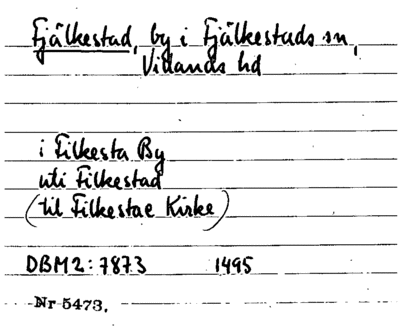 Fjälkestad, by i Fjälkestads sn,
Villands hd
i Filkesta By
uti Filkestad
(til Filkestae Kirke)
DBM2:7873 1495
Nr 5473.